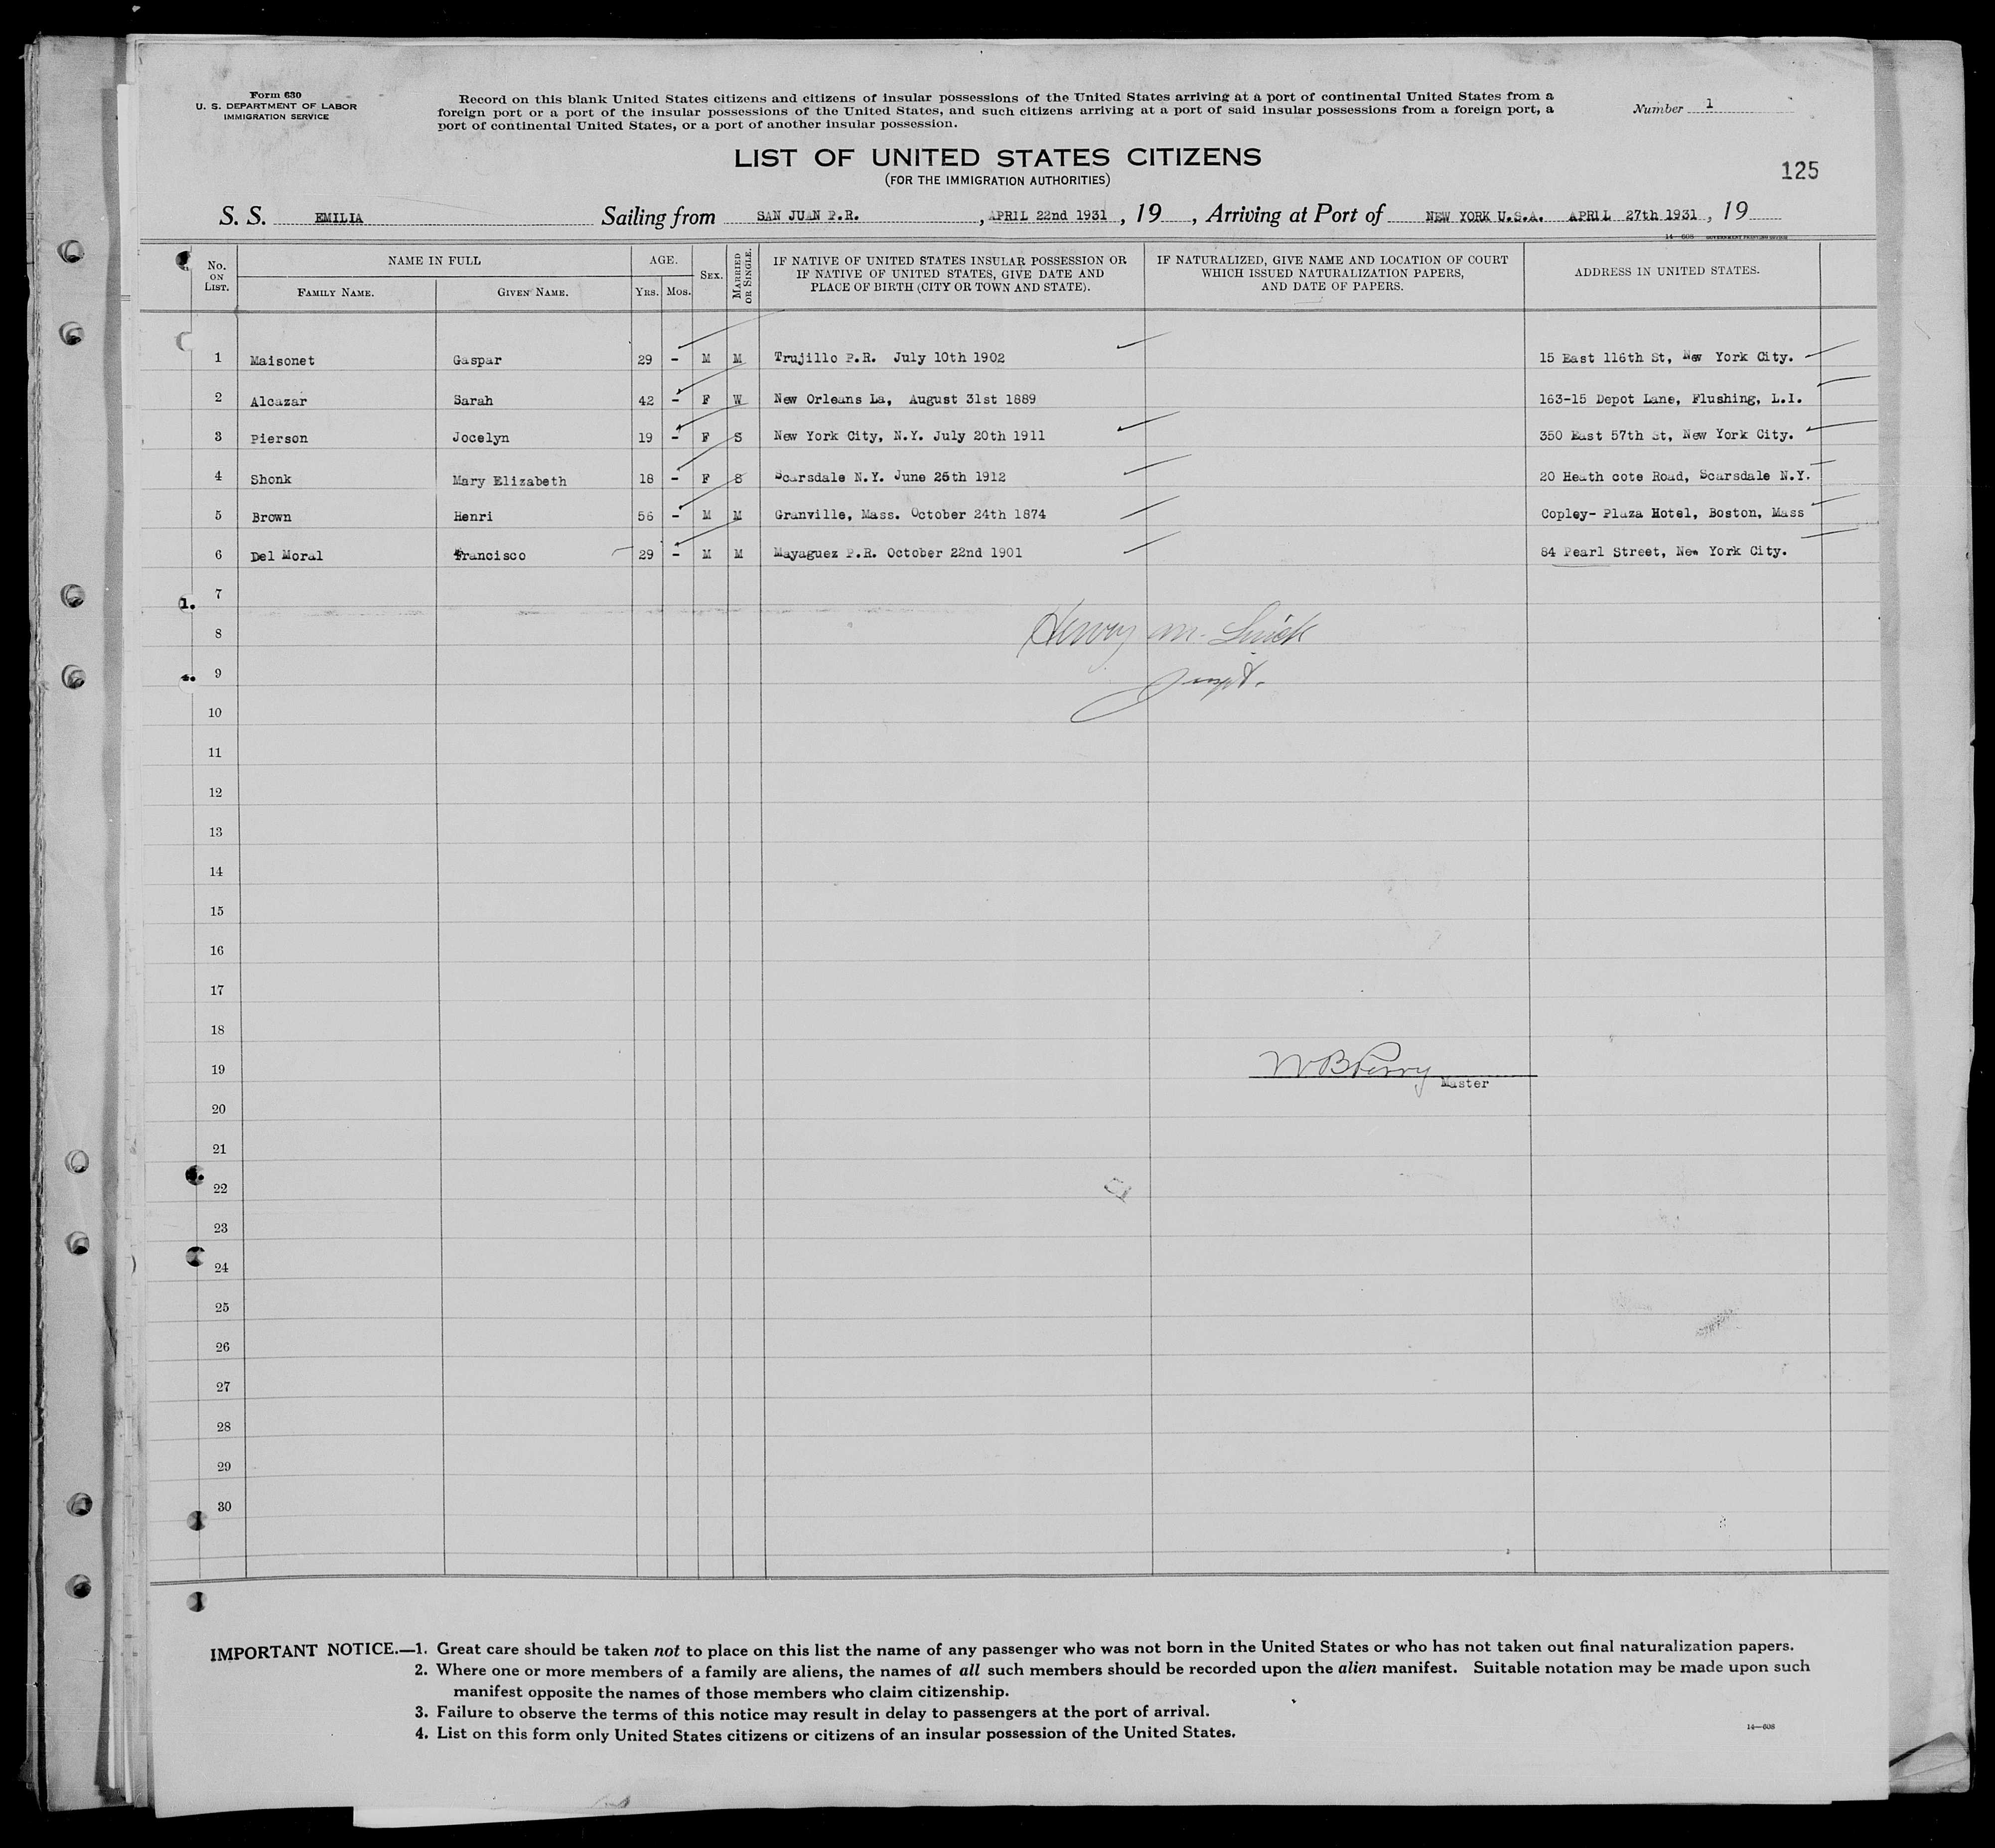 Form 630
U. S. DEPARTMENT OF LABOR
IMMIGRATION SERVICE
Record on this blank United States citizens and citizens of insular possessions of the United States arriving at a port of continental United States from a
foreign port or a port of the insular possessions of the United States, and such citizens arriving at a port of said insular possessions from a foreign port, a
port of continental United States, or a port of another insular possession.
Number 1
LIST OF UNITED STATES CITIZENS
(FOR THE IMMIGRATION AUTHORITIES)
125
S. S. EMILIA Sailing from SAN JUAN P.R. , APRIL 22nd 1931 , 19 , Arriving at Port of NEW YORK U.S.A. APRIL 27th 1931 , 19
14—608 GOVERNMENT PRINTING OFFICE
No. ON LIST. NAME IN FULL AGE. SEX. MARRIED OR SINGLE. IF NATIVE OF UNITED STATES INSULAR POSSESSION OR IF NATIVE OF UNITED STATES, GIVE DATE AND PLACE OF BIRTH (CITY OR TOWN AND STATE). IF NATURALIZED, GIVE NAME AND LOCATION OF COURT WHICH ISSUED NATURALIZATION PAPERS, AND DATE OF PAPERS. ADDRESS IN UNITED STATES.
FAMILY NAME. GIVEN NAME. YRS. MOS.
1 Maisonet Gaspar 29 - M M Trujillo P.R. July 10th 1902 15 East 116th St, New York City.
2 Alcazar Sarah 42 - F W New Orleans La, August 31st 1889 163-15 Depot Lane, Flushing, L.I.
3 Pierson Jocelyn 19 - F S New York City, N.Y. July 20th 1911 350 East 57th St, New York City.
4 Shonk Mary Elizabeth 18 - F S Scarsdale N.Y. June 25th 1912 20 Heath cote Road, Scarsdale N.Y.
5 Brown Henri 56 - M M Granville, Mass. October 24th 1874 Copley- Plaza Hotel, Boston, Mass
6 Del Moral Francisco 29 - M M Mayaguez P.R. October 22nd 1901 84 Pearl Street, New York City.
7
8
9
10
11
12
13
14
15
16
17
18
19 W B Perry
Master
20
21
22
23
24
25
26
27
28
29
30
IMPORTANT NOTICE.—1. Great care should be taken not to place on this list the name of any passenger who was not born in the United States or who has not taken out final naturalization papers.
2. Where one or more members of a family are aliens, the names of all such members should be recorded upon the alien manifest. Suitable notation may be made upon such
manifest opposite the names of those members who claim citizenship.
3. Failure to observe the terms of this notice may result in delay to passengers at the port of arrival.
4. List on this form only United States citizens or citizens of an insular possession of the United States.
14—608